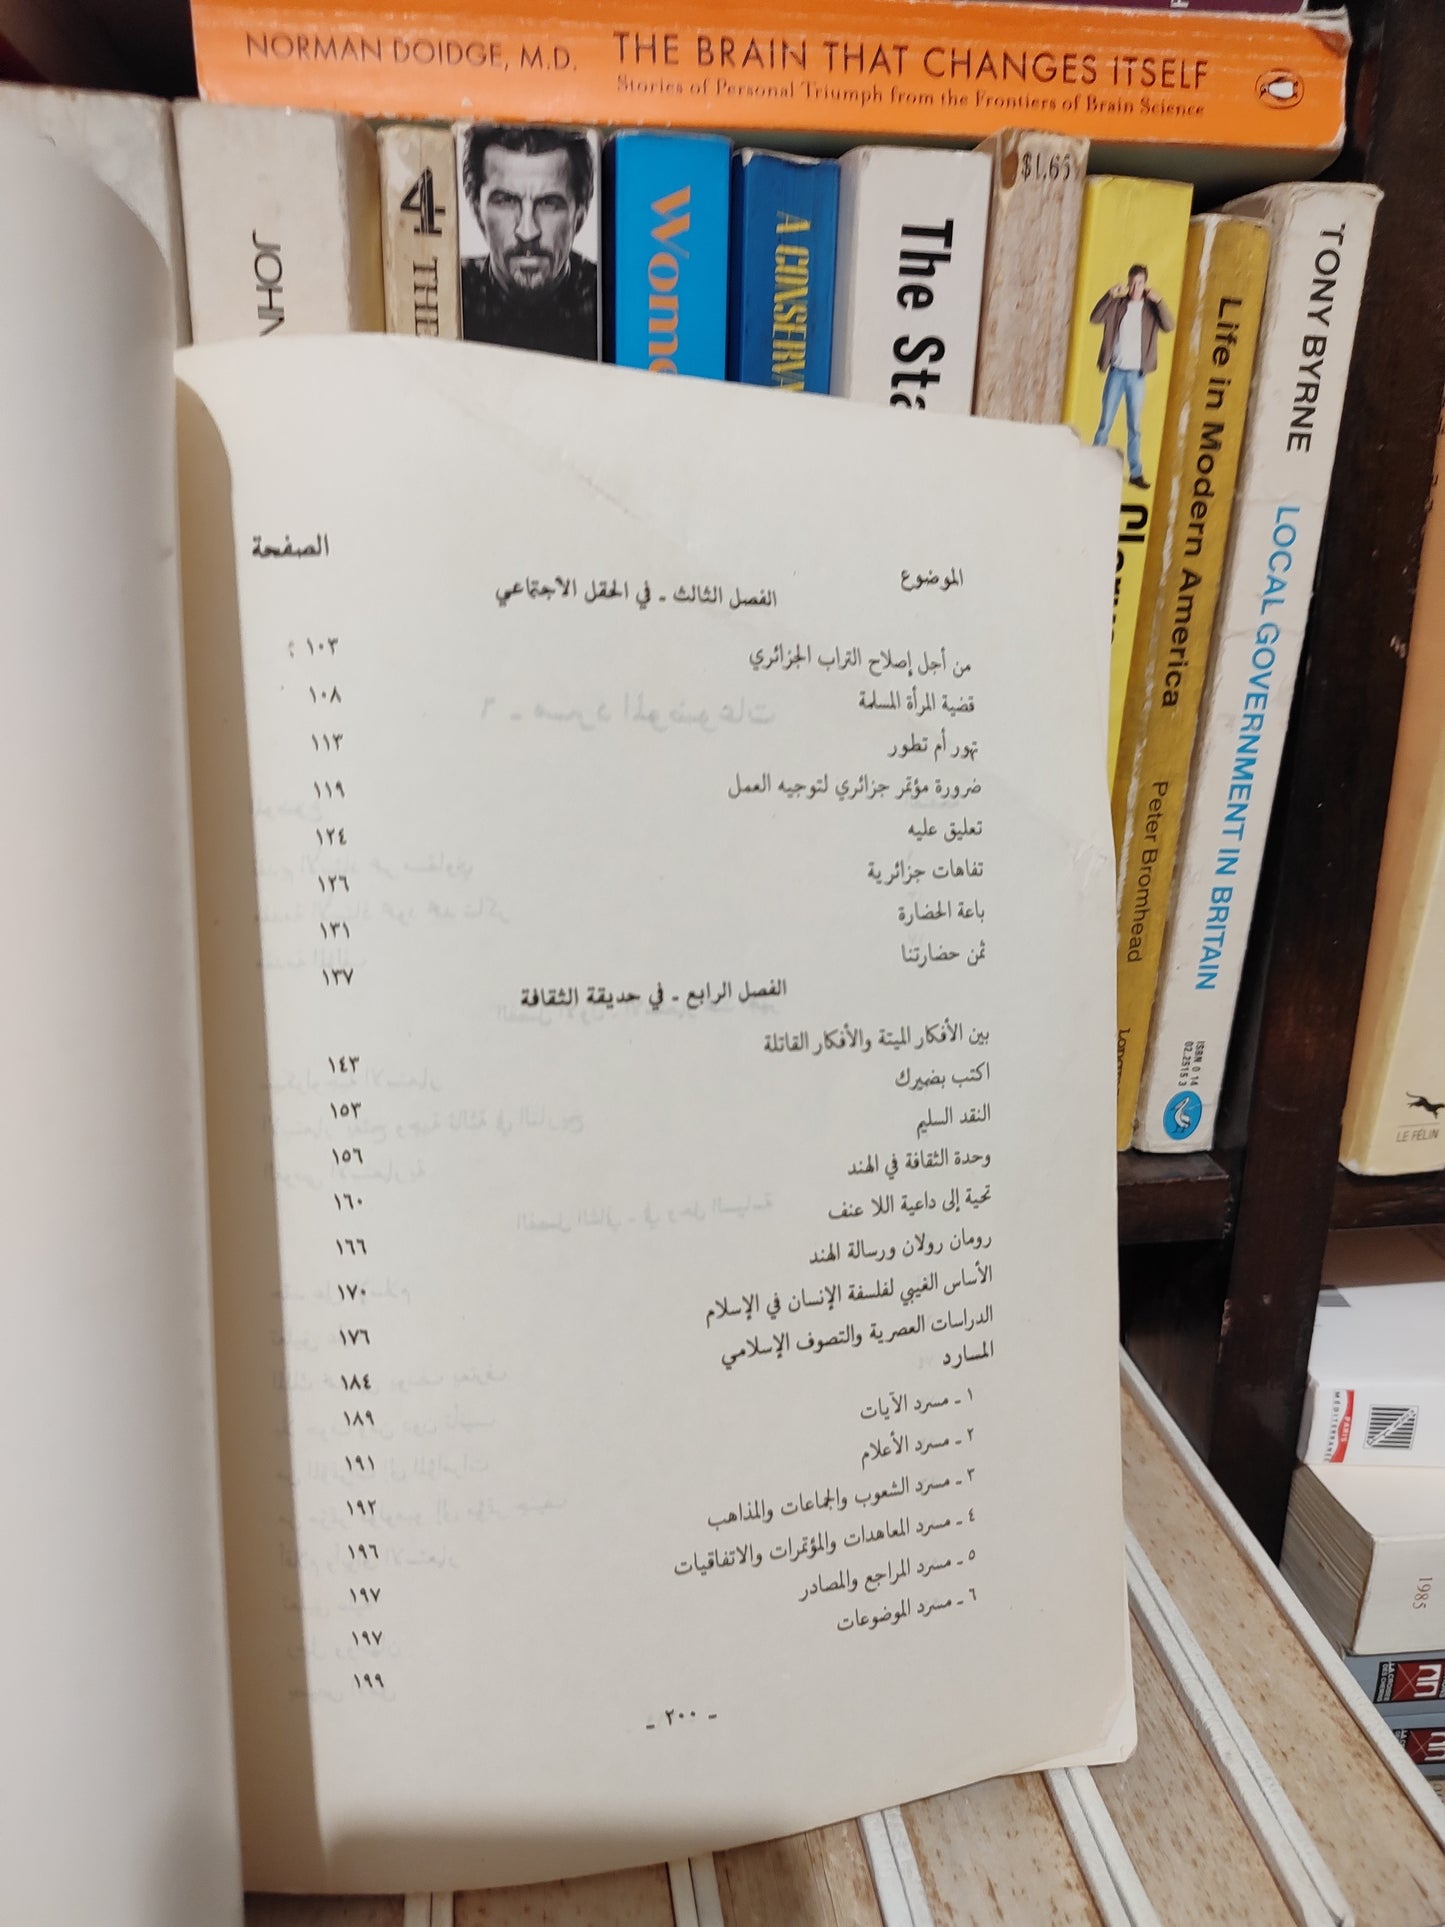 NORMAN DOIDGE, M.D. THE BRAIN THAT CHANGES ITSELF
Stories of Personal Triumph from the Frontiers of Brain Science
JOHN
4 THE
A CONSERVA
The Sta
$1.65
Life in Modern America
Peter Bromhead
TONY BYRNE LOCAL GOVERNMENT IN BRITAIN
ISBN 0 14
02.2515 3
LE FÉLIN
PARIS
MÉDITERRANÉE
1985
الموضوع الصفحة
الفصل الثالث ـ في الحقل الاجتماعي
من أجل إصلاح التراب الجزائري ١٠٣
قضية المرأة المسلمة ١٠٨
تهور أم تطور ١١٣
ضرورة مؤتمر جزائري لتوجيه العمل ١١٩
تعليق عليه ١٢٤
تفاهات جزائرية ١٢٦
باعة الحضارة ١٣١
ثمن حضارتنا ١٣٧
الفصل الرابع ـ في حديقة الثقافة
بين الأفكار الميتة والأفكار القاتلة ١٤٣
اكتب بضميرك ١٥٣
النقد السليم ١٥٦
وحدة الثقافة في الهند ١٦٠
تحية إلى داعية اللا عنف ١٦٦
رومان رولان ورسالة الهند ١٧٠
الأساس الغيبي لفلسفة الإنسان في الإسلام ١٧٦
الدراسات العصرية والتصوف الإسلامي ١٨٤
المسارد ١٨٩
١ ـ مسرد الآيات ١٩١
٢ ـ مسرد الأعلام ١٩٢
٣ ـ مسرد الشعوب والجماعات والمذاهب ١٩٦
٤ ـ مسرد المعاهدات والمؤتمرات والاتفاقيات ١٩٧
٥ ـ مسرد المراجع والمصادر ١٩٧
٦ ـ مسرد الموضوعات ١٩٩
ـ ٢٠٠ ـ